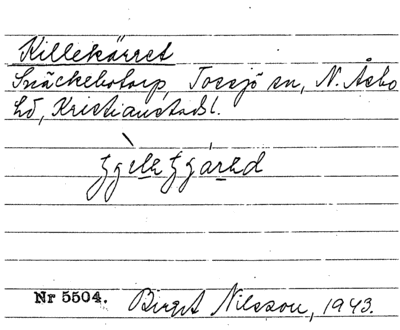 Killekärret
Snäckebotorp, Tossjö sn, N. Åsbo
hd, Kristianstads l.
Nr 5504. Birgit Nilsson, 1943.